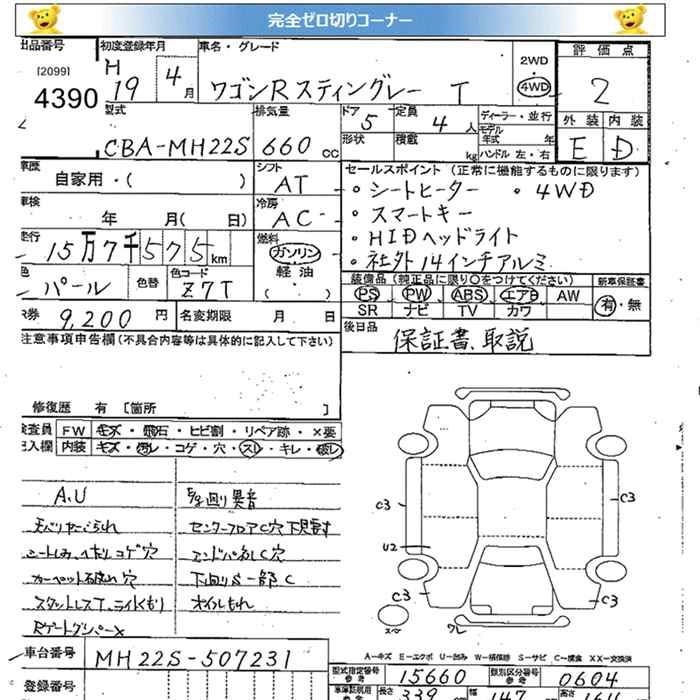 完全ゼロ切りコーナー
出品番号 初度登録年月 車名・グレード 2WD 評価点
[2099] H 19 4月 ワゴンR スティングレー T 4WD 2
4390
型式 排気量 ドア 5 定員 4人 ディーラー・並行 外装 内装
CBA-MH22S 660cc 形状 積載 kg モデル年式 年 E D
ハンドル 左・右
車歴 シフト セールスポイント (正常に機能するものに限ります)
自家用・( ) AT ・シートヒーター ・4WD
車検 冷房 ・スマートキー
年 月( 日) AC ・HIDヘッドライト
走行 燃料 ・社外14インチアルミ
15万7千575km ガソリン
色 色替 色コード 軽油 装備品(純正品に限り○をつけてください) 新車保証書
パール Z7T ( ) PS PW ABS エアB AW 有・無
SR ナビ TV カワ
R券 9,200円 名変期限 月 日 後日品
保証書、取説
注意事項申告欄(不具合内容等は具体的に記入して下さい)
修復歴 有 [箇所 ]
検査員 FW キズ・飛石・ヒビ割・リペア跡・×要
記入欄 内装 キズ・汚レ・コゲ・穴・スレ・キレ・破レ
A.U
センターフロアC穴
コゲ穴
カーペット 穴
下回りS一部C
オイルもれ
C3 C3
U2
C3 C3
ワレ
A-キズ E-エクボ U-凹み W-補修跡 S-サビ C-腐食 XX-交換済
車台番号 MH22S-507231
型式指定番号 参考 15660 類別区分番号 参考 0604
登録番号
長さ 339 幅 147